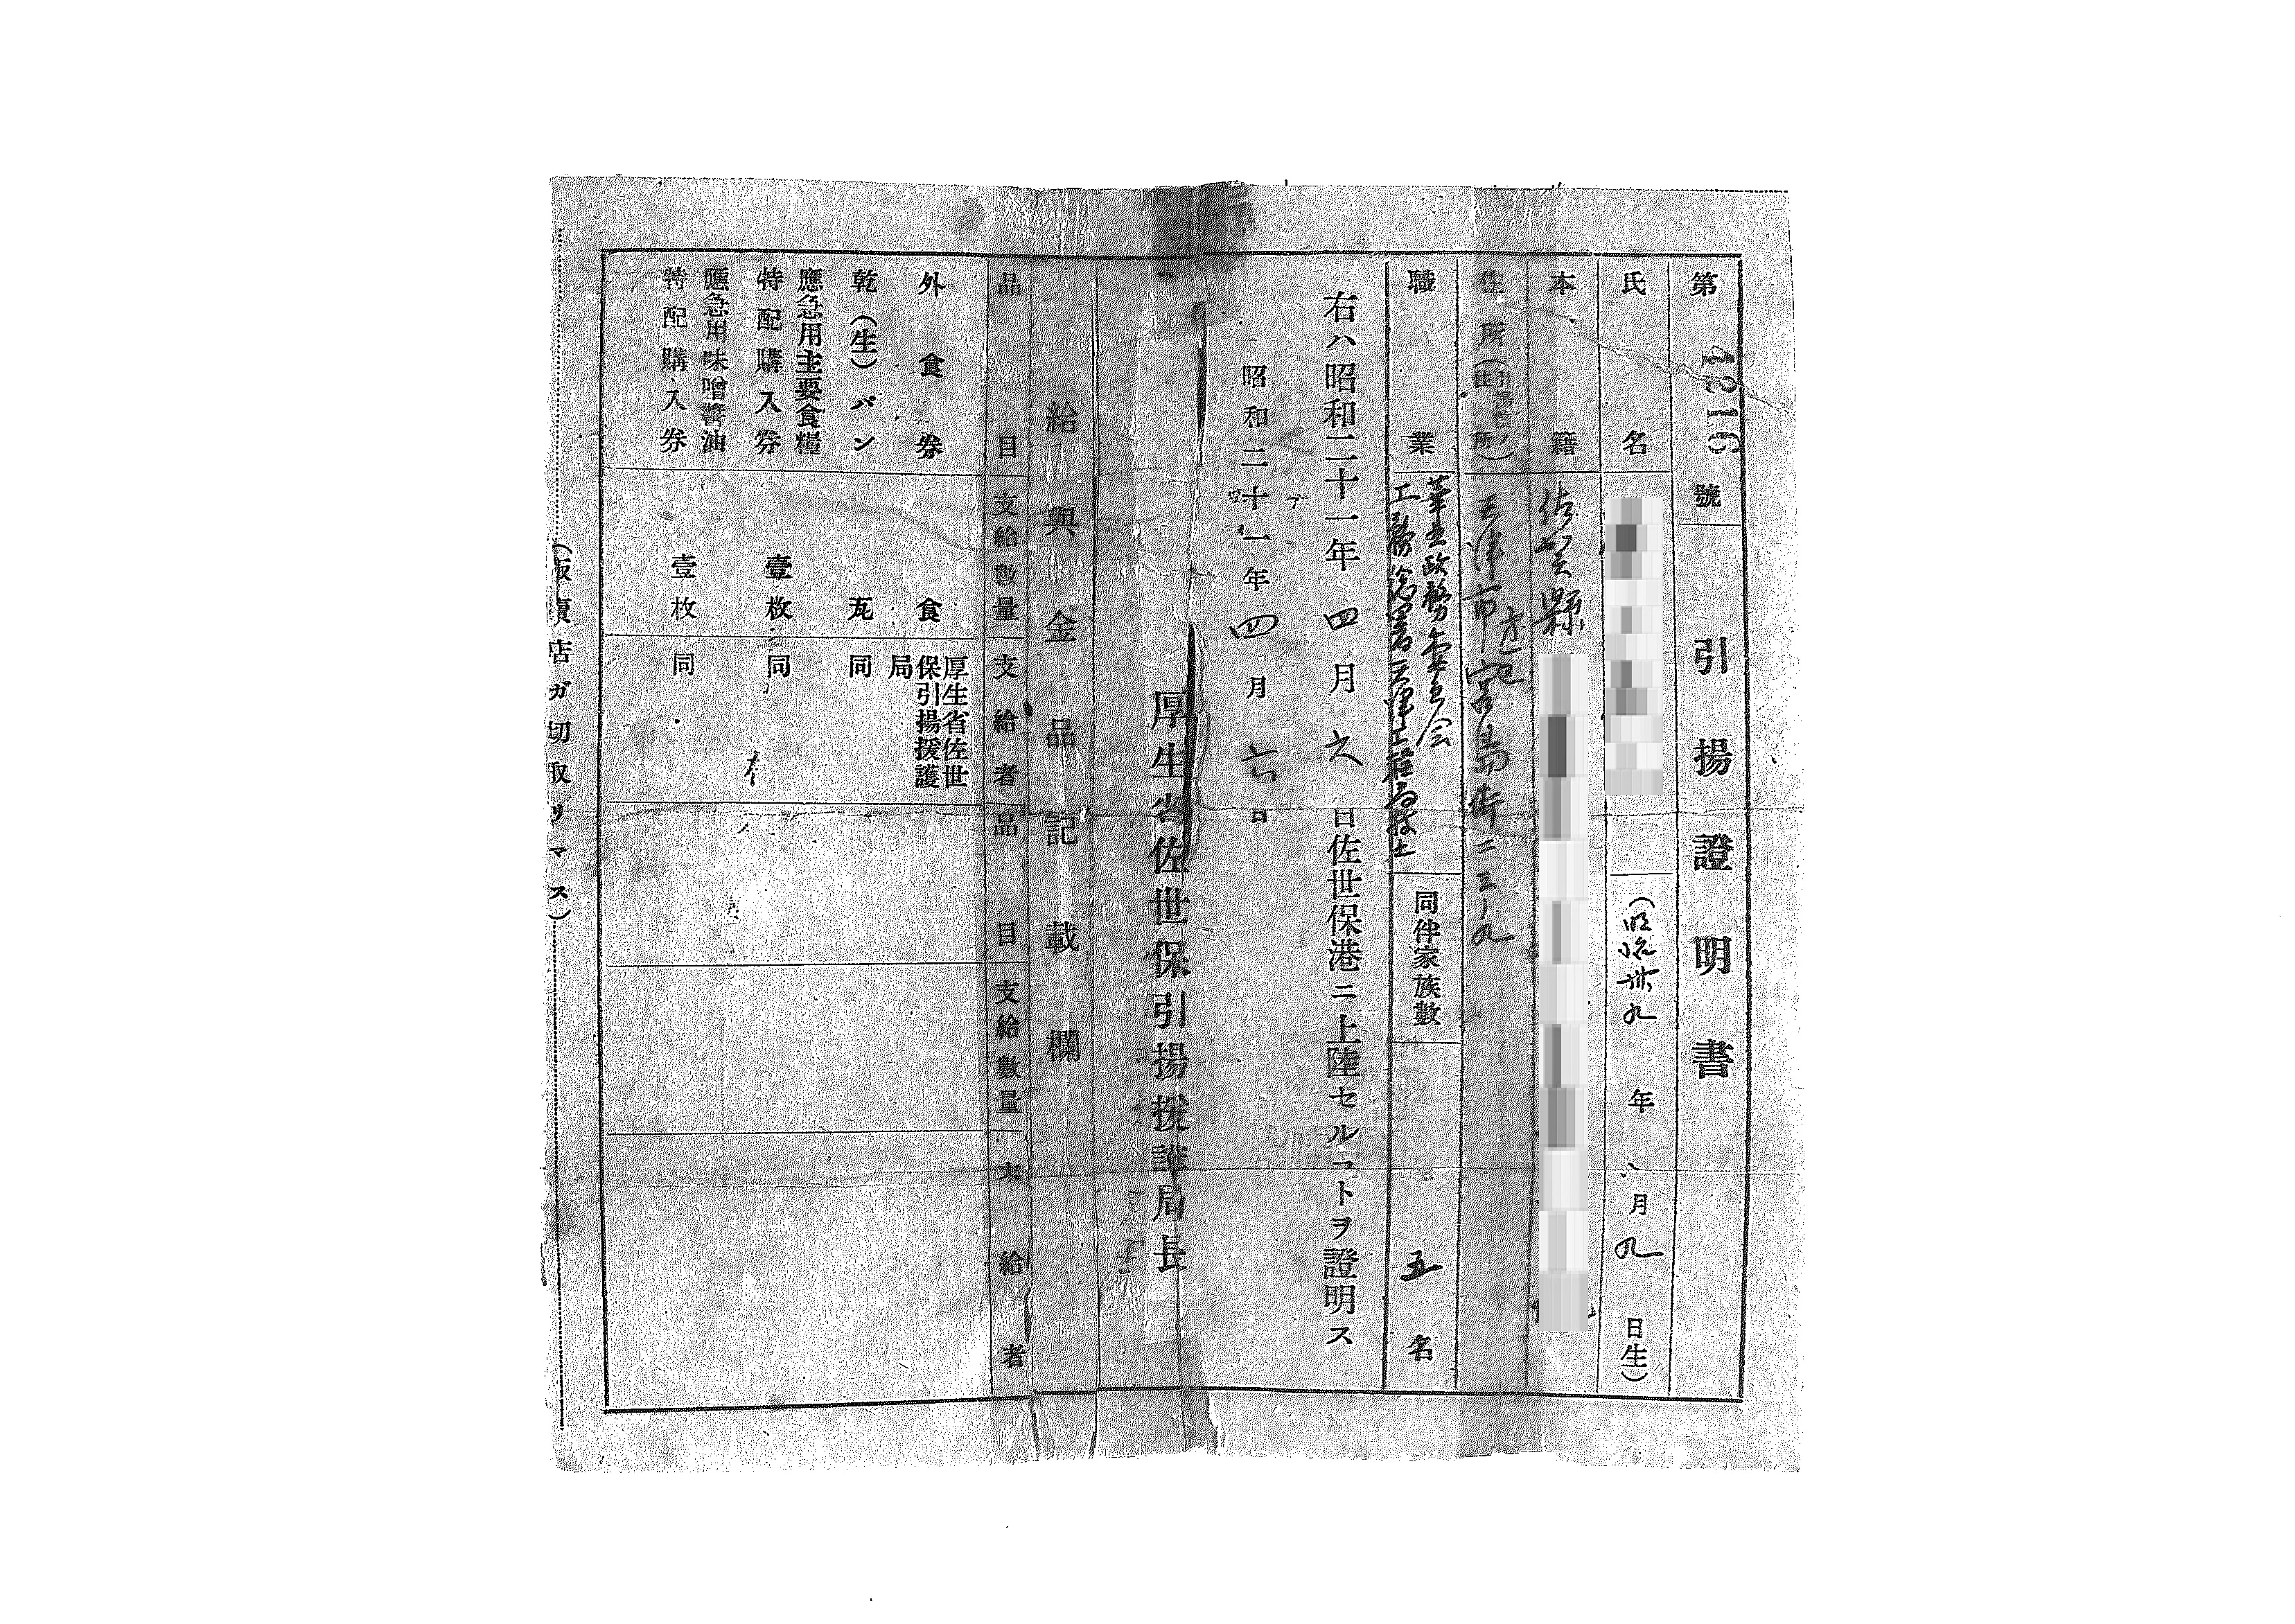 第1216號 引揚證明書
氏名 (明治卅九年 月九日生)
本籍 佐賀縣
住所(引揚者ノ住所) 天津市 宮島街二三ノ九
職業 華北政務委員会
工務總署天津工程局技士
同伴家族數 五名
右ハ昭和二十一年四月六日佐世保港ニ上陸セルコトヲ證明ス
昭和二十一年四月六日
厚生省佐世保引揚援護局長
給與金品記載欄
品目 支給數量 支給者 品目 支給數量 支給者
外食券 食 厚生省佐世保引揚援護局
乾(生)パン 瓦 同
應急用主要食糧
特配購入券 壹枚 同
應急用味噌醬油
特配購入券 壹枚 同
(販賣店ガ切取リマス)